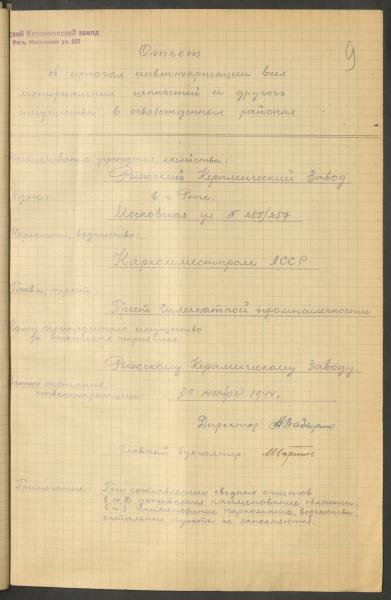 ский Керамический завод
Рига, Московская ул. 257
9
Отчет
об итогах инвентаризации всех
материальных ценностей и другого
имущества в освобожденных районах
Наименование учреждения, хозяйства:
Рижский Керамический Завод
Адрес: в г. Риге,
Московская ул № 255/257
Наркомат, ведомство:
Наркомместпром ЛССР
Главк, трест:
Трест Силикатной промышленности
Кому принадлежало имущество
до оккупации
Рижскому Керамическому Заводу
Дата окончания
инвентаризации: 30 ноября 1944.
Директор:
Главный бухгалтер:
Примечание: При составлении сводных отчетов
в п. 2 указывается наименование области,
в п. 3 наименование наркомата, ведомства,
остальные пункты не заполняются.